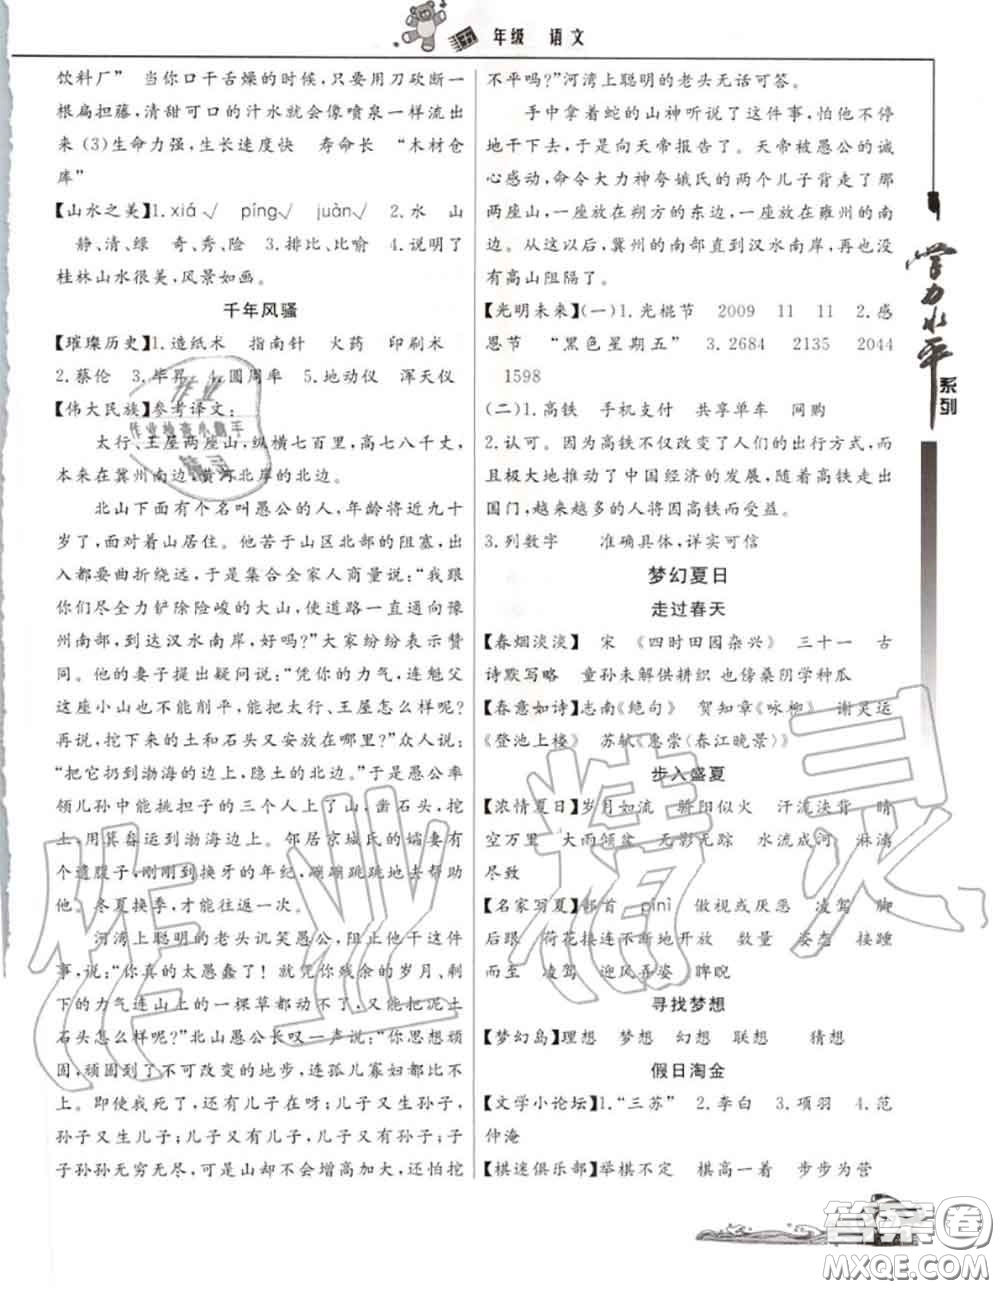 年级 语文
饮料厂” 当你口干舌燥的时候,只要用刀砍断一
根扁担藤,清甜可口的汁水就会像喷泉一样流出
来 (3)生命力强,生长速度快 寿命长 “木材仓
库”
【山水之美】1. xiá√ píng√ juàn√ 2. 水 山
静、清、绿 奇、秀、险 3. 排比、比喻 4. 说明了
桂林山水很美,风景如画。
千年风骚
【璀璨历史】1. 造纸术 指南针 火药 印刷术
2. 蔡伦 3. 毕昇 4. 圆周率 5. 地动仪 浑天仪
【伟大民族】参考译文:
太行、王屋两座山,纵横七百里,高七八千丈,
本来在冀州南边,黄河北岸的北边。
北山下面有个名叫愚公的人,年龄将近九十
岁了,面对着山居住。他苦于山区北部的阻塞,出
入都要曲折绕远,于是集合全家人商量说:“我跟
你们尽全力铲除险峻的大山,使道路一直通向豫
州南部,到达汉水南岸,好吗?”大家纷纷表示赞
同。他的妻子提出疑问说:“凭你的力气,连魁父
这座小山也不能削平,能把太行、王屋怎么样呢?
再说,挖下来的土和石头又安放在哪里?”众人说:
“把它扔到渤海的边上,隐土的北边。”于是愚公率
领儿孙中能挑担子的三个人上了山,凿石头,挖
土,用箕畚运到渤海边上。邻居京城氏的孀妻有
个遗腹子,刚刚到换牙的年纪,蹦蹦跳跳地去帮助
他。冬夏换季,才能往返一次。
河湾上聪明的老头讥笑愚公,阻止他干这件
事,说:“你真的太愚蠢了!就凭你残余的岁月、剩
下的力气连山上的一棵草都动不了,又能把泥土
石头怎么样呢?”北山愚公长叹一声说:“你思想顽
固,顽固到了不可改变的地步,连孤儿寡妇都比不
上。即使我死了,还有儿子在呀;儿子又生孙子,
孙子又生儿子;儿子又有儿子,儿子又有孙子;子
子孙孙无穷无尽,可是山却不会增高加大,还怕挖
不平吗?”河湾上聪明的老头无话可答。
手中拿着蛇的山神听说了这件事,怕他不停
地干下去,于是向天帝报告了。天帝被愚公的诚
心感动,命令大力神夸娥氏的两个儿子背走了那
两座山,一座放在朔方的东边,一座放在雍州的南
边。从这以后,冀州的南部直到汉水南岸,再也没
有高山阻隔了。
【光明未来】(一)1. 光棍节 2009 11 11 2. 感
恩节 “黑色星期五” 3. 2684 2135 2044
1598
(二)1. 高铁 手机支付 共享单车 网购
2. 认可。因为高铁不仅改变了人们的出行方式,而
且极大地推动了中国经济的发展,随着高铁走出
国门,越来越多的人将因高铁而受益。
3. 列数字 准确具体,详实可信
梦幻夏日
走过春天
【春烟淡淡】 宋 《四时田园杂兴》 三十一 古
诗默写略 童孙未解供耕织 也傍桑阴学种瓜
【春意如诗】志南《绝句》 贺知章《咏柳》 谢灵运
《登池上楼》 苏轼《惠崇〈春江晚景〉》
步入盛夏
【浓情夏日】岁月如流 骄阳似火 汗流浃背 晴
空万里 大雨倾盆 无影无踪 水流成河 淋漓
尽致
【名家写夏】部首 pìnì 傲视或厌恶 凌驾 脚
后跟 荷花接连不断地开放 数量 姿态 接踵
而至 凌驾 迎风弄姿 睥睨
寻找梦想
【梦幻岛】理想 梦想 幻想 联想 猜想
假日淘金
【文学小论坛】1. “三苏” 2. 李白 3. 项羽 4. 范
仲淹
【棋迷俱乐部】举棋不定 棋高一着 步步为营
学力水平
系列
作业精灵
答案圈